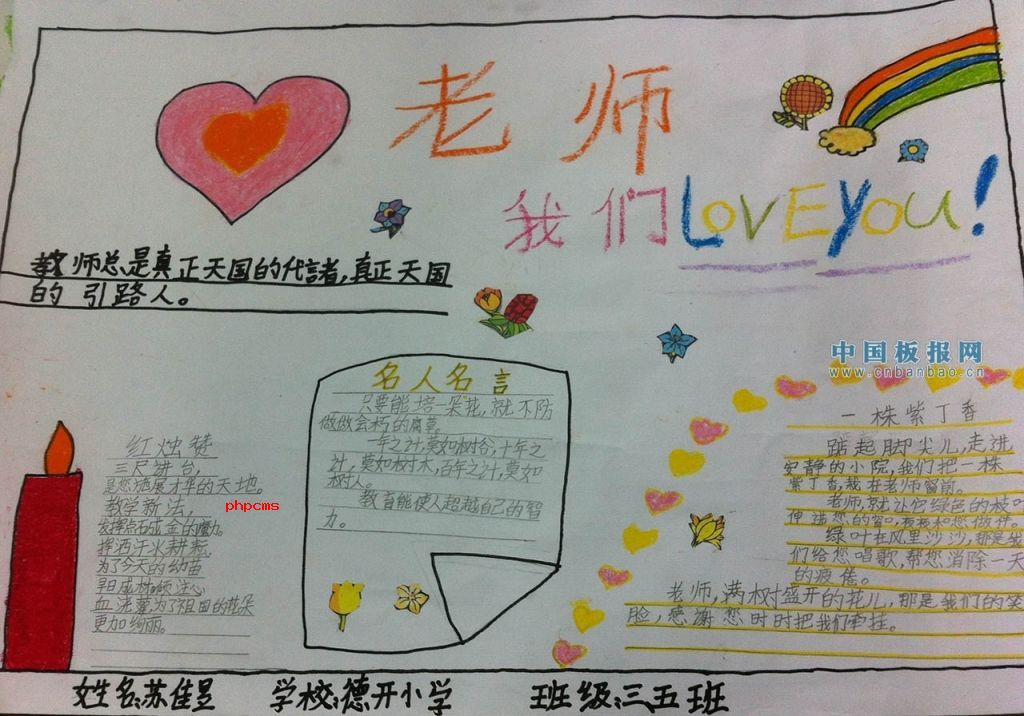 老师
我们LOVEYOU!
教师总是真正天国的代言者,真正天国
的引路人。
中国板报网
www.cnbanbao.cn
名人名言
只要能培一朵花,就不防
做做会朽的腐草。
一年之计,莫如树谷,十年之
计,莫如树木,百年之计,莫如
树人。
教育能使人超越自己的智
力。
红烛赞
三尺讲台,
是您施展才华的天地。
教学新法,
发挥点石成金的魔力。
挥洒汗水耕耘,
为了今天的幼苗
早日成材
血浇灌,为了祖国的花朵
更加绚丽。
phpcms
一株紫丁香
踮起脚尖儿,走进
安静的小院,我们把一株
紫丁香,栽在老师窗前。
老师,就让它绿色的枝叶
伸进您的窗口,夜夜和您做伴。
绿叶在风里沙沙,那是我
们给您唱歌,帮您消除一天
的疲倦。
老师,满树盛开的花儿,那是我们的笑
脸,感谢您时时把我们牵挂。
姓名:苏佳昱 学校:德开小学 班级:三五班